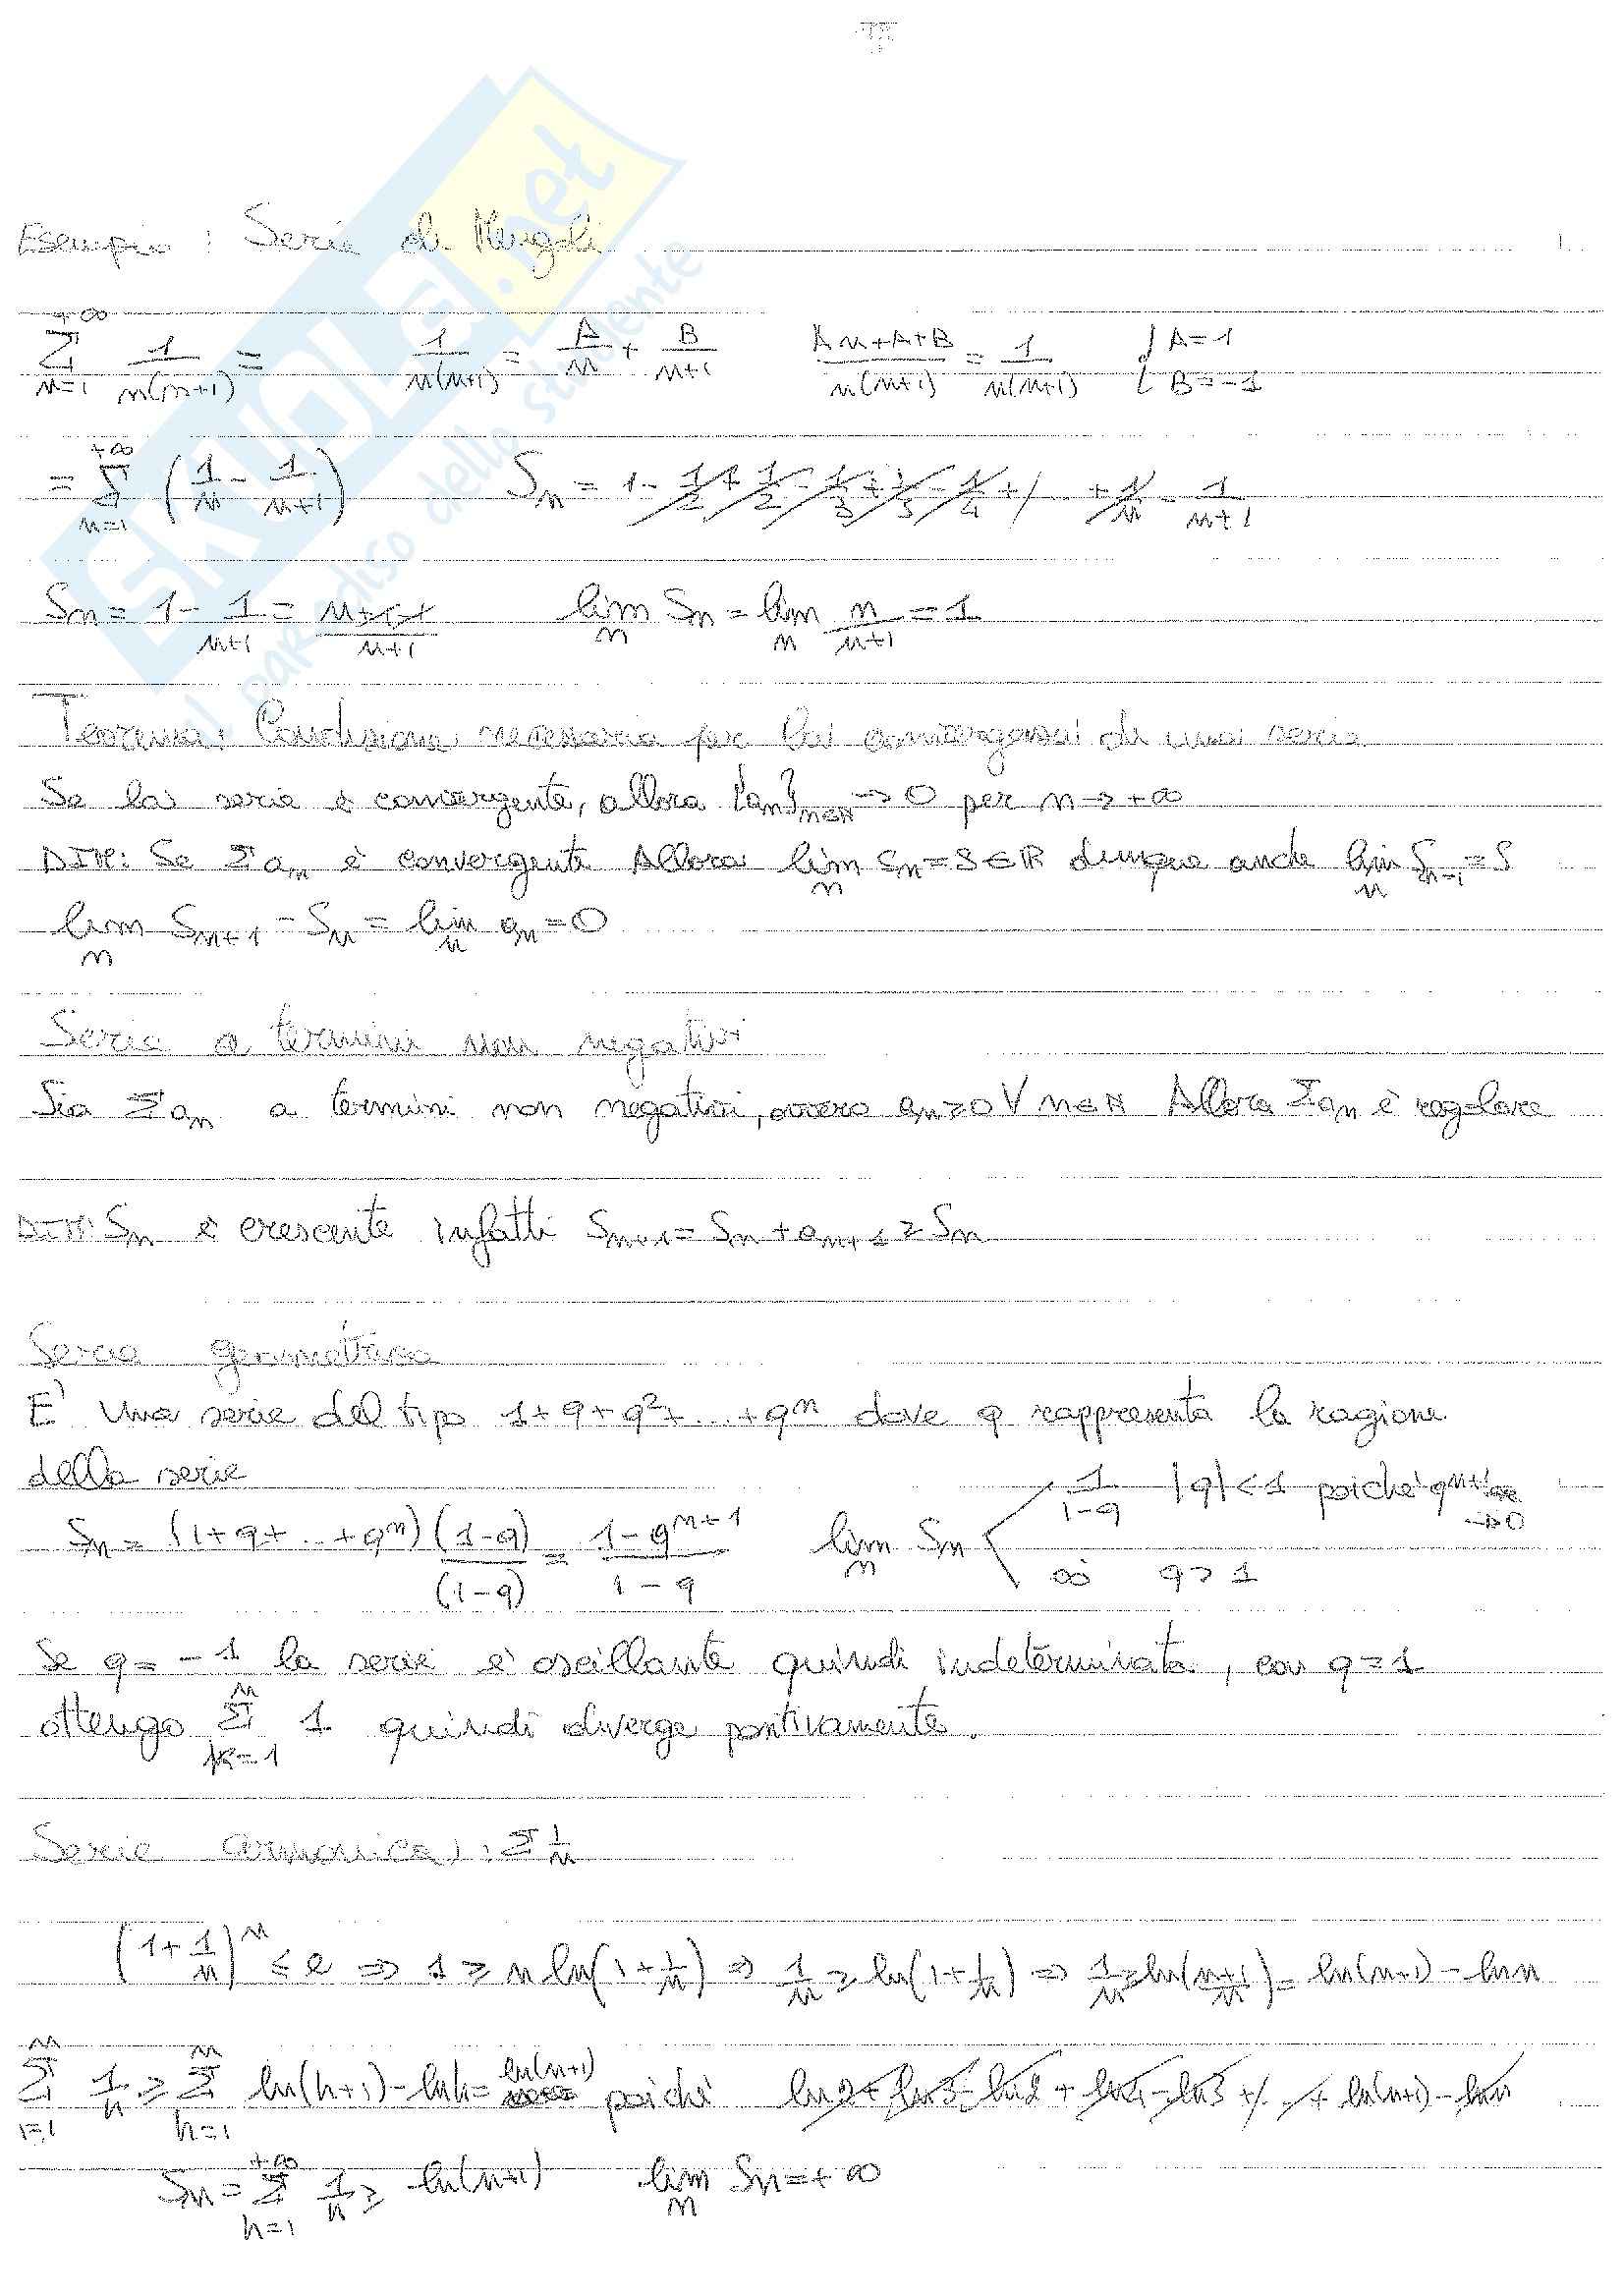 SKUOLA.net
il paradiso dello studente
Esempio : Serie di Mengoli
+∞ ∑ n=1 1/n(n+1) = 1/n(n+1) = A/n + B/n+1 An+A+B/n(n+1) = 1/n(n+1) { A=1 B=-1
= +∞ ∑ n=1 (1/n - 1/n+1) Sn = 1 - 1/2 + 1/2 - 1/3 + 1/3 - 1/4 + /.. + 1/n - 1/n+1
Sn = 1 - 1/n+1 = n+1-1/n+1 lim n Sn = lim n n/n+1 = 1
Teorema: Condizione necessaria per la convergenza di una serie
Se la serie è convergente, allora {an}n∈N → 0 per n → +∞
DIM: Se ∑an è convergente Allora lim n Sn = S ∈ R dunque anche lim n Sn-1 = S
lim n Sn+1 - Sn = lim n an = 0
Serie a termini non negativi
Sia ∑an a termini non negativi, ovvero an≥0 ∀ n∈N Allora ∑an è regolare
DIM: Sn è crescente infatti Sn+1 = Sn + an+1 ≥ Sn
Serie geometrica
E' una serie del tipo 1+q+q²+...+qⁿ dove q rappresenta la ragione
della serie
Sn = (1+q+...+qⁿ) (1-q)/(1-q) = 1-qⁿ⁺¹/1-q lim n Sn 1/1-q |q|<1 poiché qⁿ⁺¹ → 0
∞ q>1
Se q = -1 la serie è oscillante quindi indeterminata, con q=1
ottengo n ∑ k=1 1 quindi diverge positivamente.
Serie armonica: ∑ 1/n
(1+1/n)ⁿ ≤ e ⇒ 1 ≥ n ln(1+1/n) ⇒ 1/n ≥ ln(1+1/n) ⇒ 1/n ≥ ln(n+1/n) = ln(n+1) - ln n
n ∑ i=1 1/h ≥ n ∑ h=1 ln(h+1) - ln h = ln(n+1) poiché ln2 + ln3 - ln2 + ln4 - ln3 + /.. + ln(n+1) - ln n
Sn = +∞ ∑ h=1 1/h ≥ ln(n+1) lim n Sn = +∞